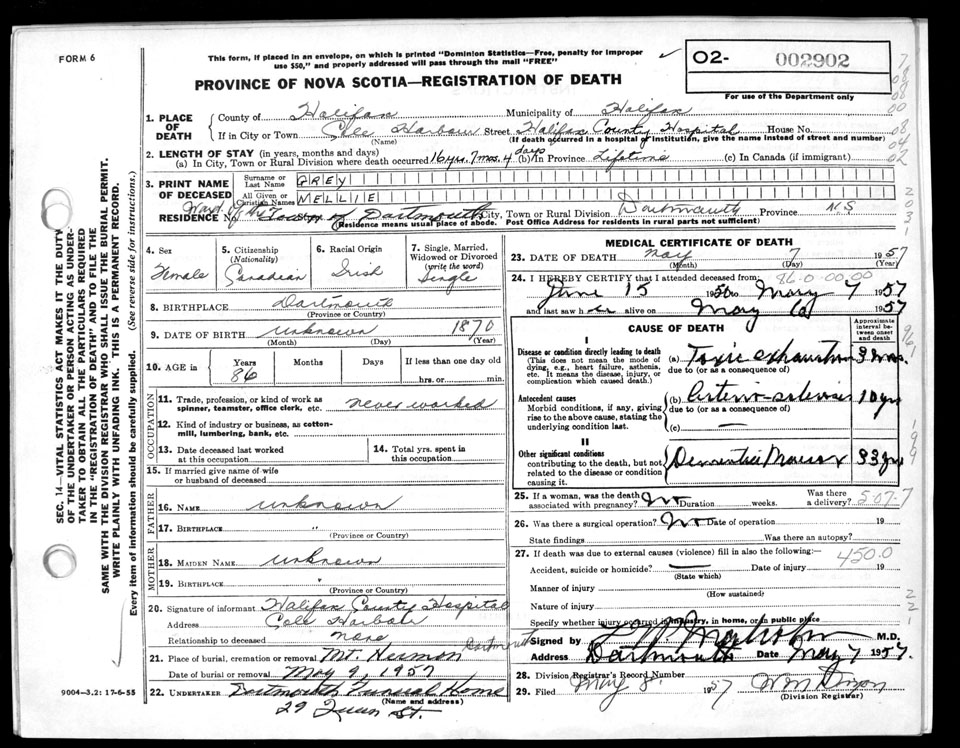 FORM 6
This form, if placed in an envelope, on which is printed "Dominion Statistics—Free, penalty for improper
use $50," and properly addressed will pass through the mail "FREE"
O2- 002902
For use of the Department only
PROVINCE OF NOVA SCOTIA—REGISTRATION OF DEATH
1. PLACE OF DEATH
County of Halifax Municipality of Halifax
If in City or Town Cole Harbour Street Halifax County Hospital House No.
(Name) (If death occurred in a hospital or institution, give the name instead of street and number)
2. LENGTH OF STAY (in years, months and days)
(a) In City, Town or Rural Division where death occurred 16 yrs. 7 mos. 4 days (b) in Province Lifetime (c) In Canada (if immigrant)
3. PRINT NAME OF DECEASED
Surname or Last Name GREY
All Given or Christian Names NELLIE
RESIDENCE No. Town of Dartmouth City, Town or Rural Division Dartmouth Province N.S
(Residence means usual place of abode. Post Office Address for residents in rural parts not sufficient)
4. Sex
Female
5. Citizenship (Nationality)
Canadian
6. Racial Origin
Irish
7. Single, Married, Widowed or Divorced (write the word)
Single
8. BIRTHPLACE Dartmouth
(Province or Country)
9. DATE OF BIRTH unknown 1870
(Month) (Day) (Year)
10. AGE in Years Months Days If less than one day old
86 hrs. or min.
OCCUPATION
11. Trade, profession, or kind of work as spinner, teamster, office clerk, etc. never worked
12. Kind of industry or business, as cotton-mill, lumbering, bank, etc.
13. Date deceased last worked at this occupation
14. Total yrs. spent in this occupation
15. If married give name of wife or husband of deceased
FATHER
16. NAME unknown
17. BIRTHPLACE "
(Province or Country)
MOTHER
18. MAIDEN NAME unknown
19. BIRTHPLACE "
(Province or Country)
20. Signature of informant Halifax County Hospital
Address Cole Harbour
Relationship to deceased none
21. Place of burial, cremation or removal Mt. Hermon Dartmouth
Date of burial or removal May 9, 1957
22. UNDERTAKER Dartmouth Funeral Home
(Name and address)
29 Queen St.
9004-3,2: 17-6-55
MEDICAL CERTIFICATE OF DEATH
23. DATE OF DEATH May 7 1957
(Month) (Day) (Year)
24. I HEREBY CERTIFY that I attended deceased from: 86-0-00.00
June 15 1956 to May 7 1957
and last saw h er alive on May 6 1957
CAUSE OF DEATH
Approximate interval between onset and death
I
Disease or condition directly leading to death
(This does not mean the mode of dying, e.g., heart failure, asthenia, etc. It means the disease, injury, or complication which caused death.)
(a) Toxic exhaustion 3 mos.
due to (or as a consequence of)
Antecedent causes
Morbid conditions, if any, giving rise to the above cause, stating the underlying condition last.
(b) 10 yrs
due to (or as a consequence of)
(c) —
II
Other significant conditions
contributing to the death, but not related to the disease or condition causing it.
Dementia Praecox 33 yrs
25. If a woman, was the death associated with pregnancy? No Duration weeks. Was there a delivery? 507-7
26. Was there a surgical operation? No Date of operation 19
State findings Was there an autopsy?
27. If death was due to external causes (violence) fill in also the following:— 450.0
Accident, suicide or homicide? — Date of injury 19
(State which)
Manner of injury
(How sustained)
Nature of injury
Specify whether injury occurred in industry, in home, or in public place
Signed by M.D.
Address Dartmouth Date May 7 1957
28. Division Registrar's Record Number
29. Filed May 8 1957
(Division Registrar)
SEC. 14—VITAL STATISTICS ACT MAKES IT THE DUTY
OF THE UNDERTAKER OR PERSON ACTING AS UNDER-
TAKER TO OBTAIN ALL THE PARTICULARS REQUIRED
IN THE "REGISTRATION OF DEATH" AND TO FILE THE
SAME WITH THE DIVISION REGISTRAR WHO SHALL ISSUE THE BURIAL PERMIT.
WRITE PLAINLY WITH UNFADING INK. THIS IS A PERMANENT RECORD.
Every item of information should be carefully supplied. (See reverse side for instructions.)